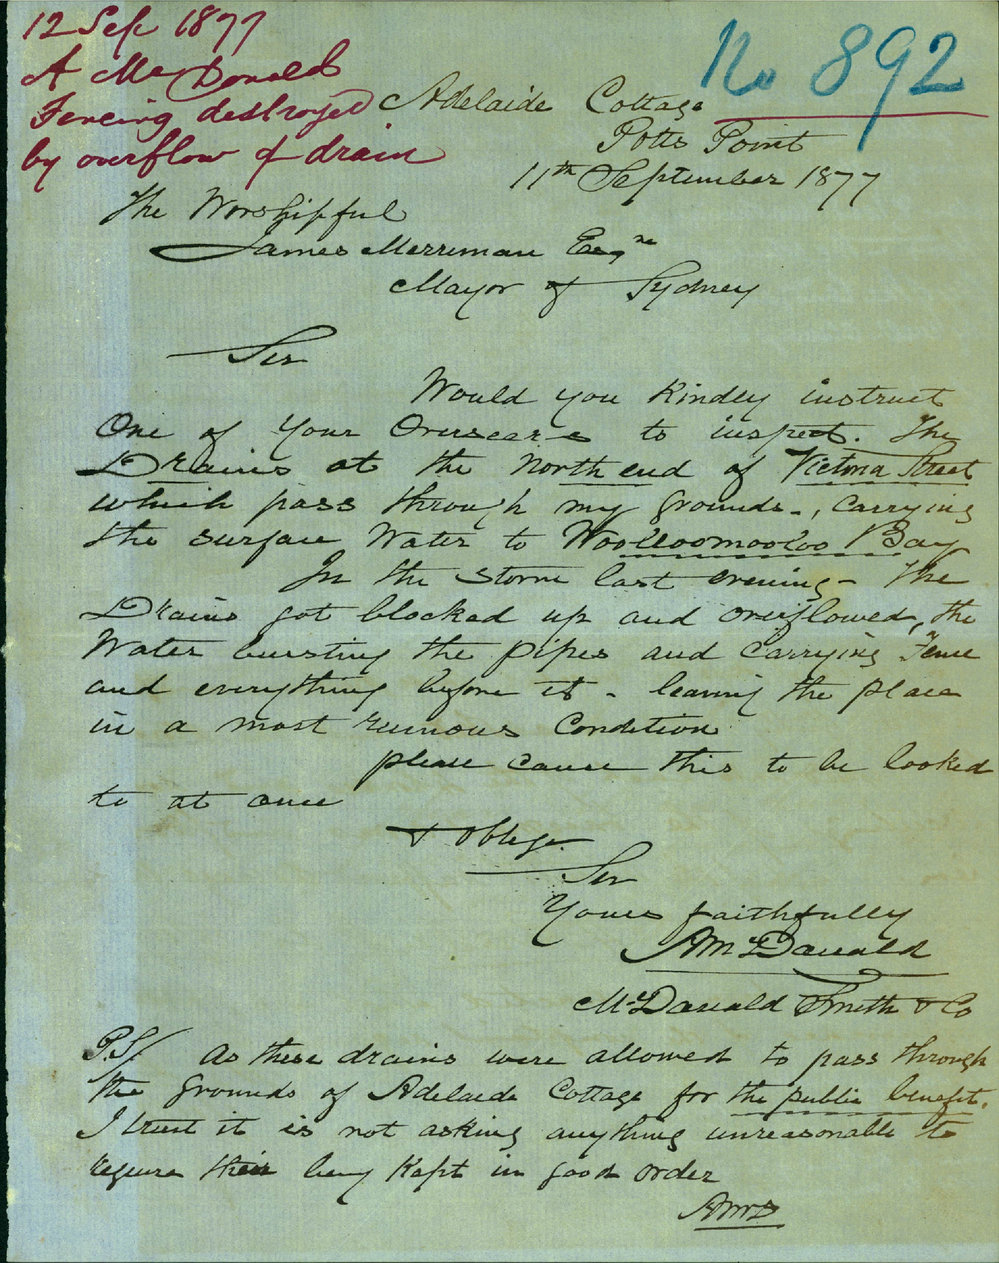 12 Sep 1877
A MacDonald
Fencing destroyed
by overflow of drain
No 892
Adelaide Cottage
Potts Point
11th September 1877
The Worshipful
James Merriman Esqre
Mayor of Sydney
Sir
Would you Kindly instruct
One of Your Overseers to inspect. The
Drains at the North end of Victoria Street
which pass through my grounds-, Carrying
the surface Water to Woolloomooloo Bay
In the storm last evening - the
Drains got blocked up and overflowed, the
Water bursting the pipes and Carrying Fence
and everything before it - leaving the place
in a most ruinous Condition
please cause this to be looked
to at once
& oblige
Sir
Yours faithfully
A McDonald
McDonald Smith & Co
P.S/ As these drains were allowed to pass through
the grounds of Adelaide Cottage for the public benefit.
I trust it is not asking anything unreasonable to
require their being Kept in good order
AMcD